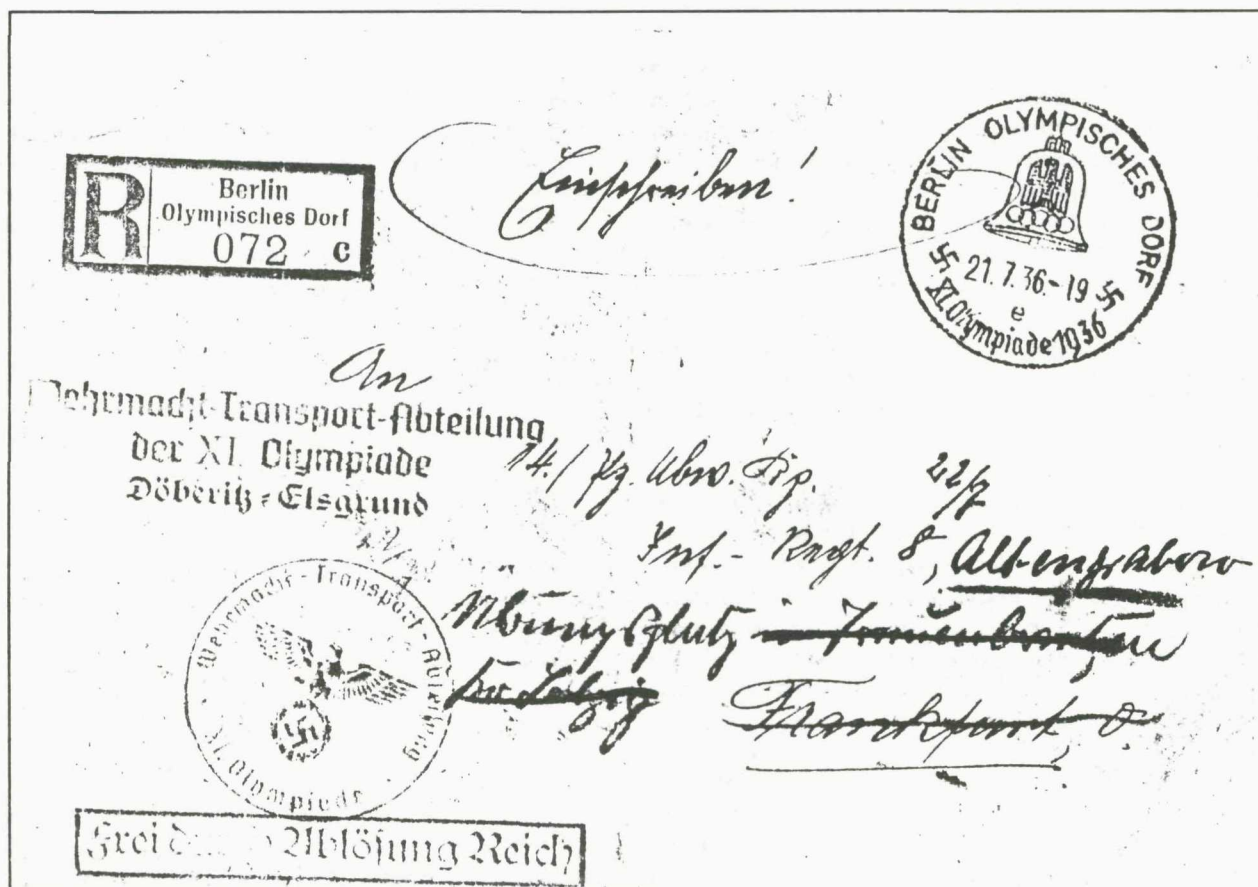 R
Berlin
Olympisches Dorf
072 c
Einschreiben!
BERLIN OLYMPISCHES DORF
21.7.36.-19
e
XI. Olympiade 1936
An
Wehrmacht-Transport-Abteilung
der XI. Olympiade
Döberitz-Elsgrund
14./Pz. Abw. Kp. 22/7
Inf.- Regt. 8, Altengrabow
Übungsplatz in
Frankfurt, O.
Wehrmacht-Transport-Abteilung
XI. Olympiade
Frei durch Ablösung Reich